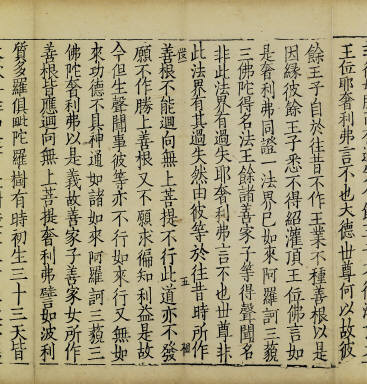 王位耶奢利弗言不也大德世尊何以故彼
餘王子自於往昔不作王業不種善根以是
因緣彼餘王子悉不得紹灌頂王位佛言如
是奢利弗同證一法界已如來阿羅訶三藐
三佛陀得名法王餘諸善家子等得聲聞名
非此法界有過失耶奢利弗言不也世尊非
此法界有其過失然由彼等於往昔時所作
善根不能迴向無上菩提不行此道亦不發
願不作勝上善根又不願求徧知利益是故
今但生聲聞事彼等亦不行如來行又無如
來功德不具神通如諸如來阿羅訶三藐三
佛陀奢利弗以是義故善家子善家女所作
善根皆應迴向無上菩提奢利弗譬如波利
質多羅俱毗陀羅樹有時初生三十三天皆
五